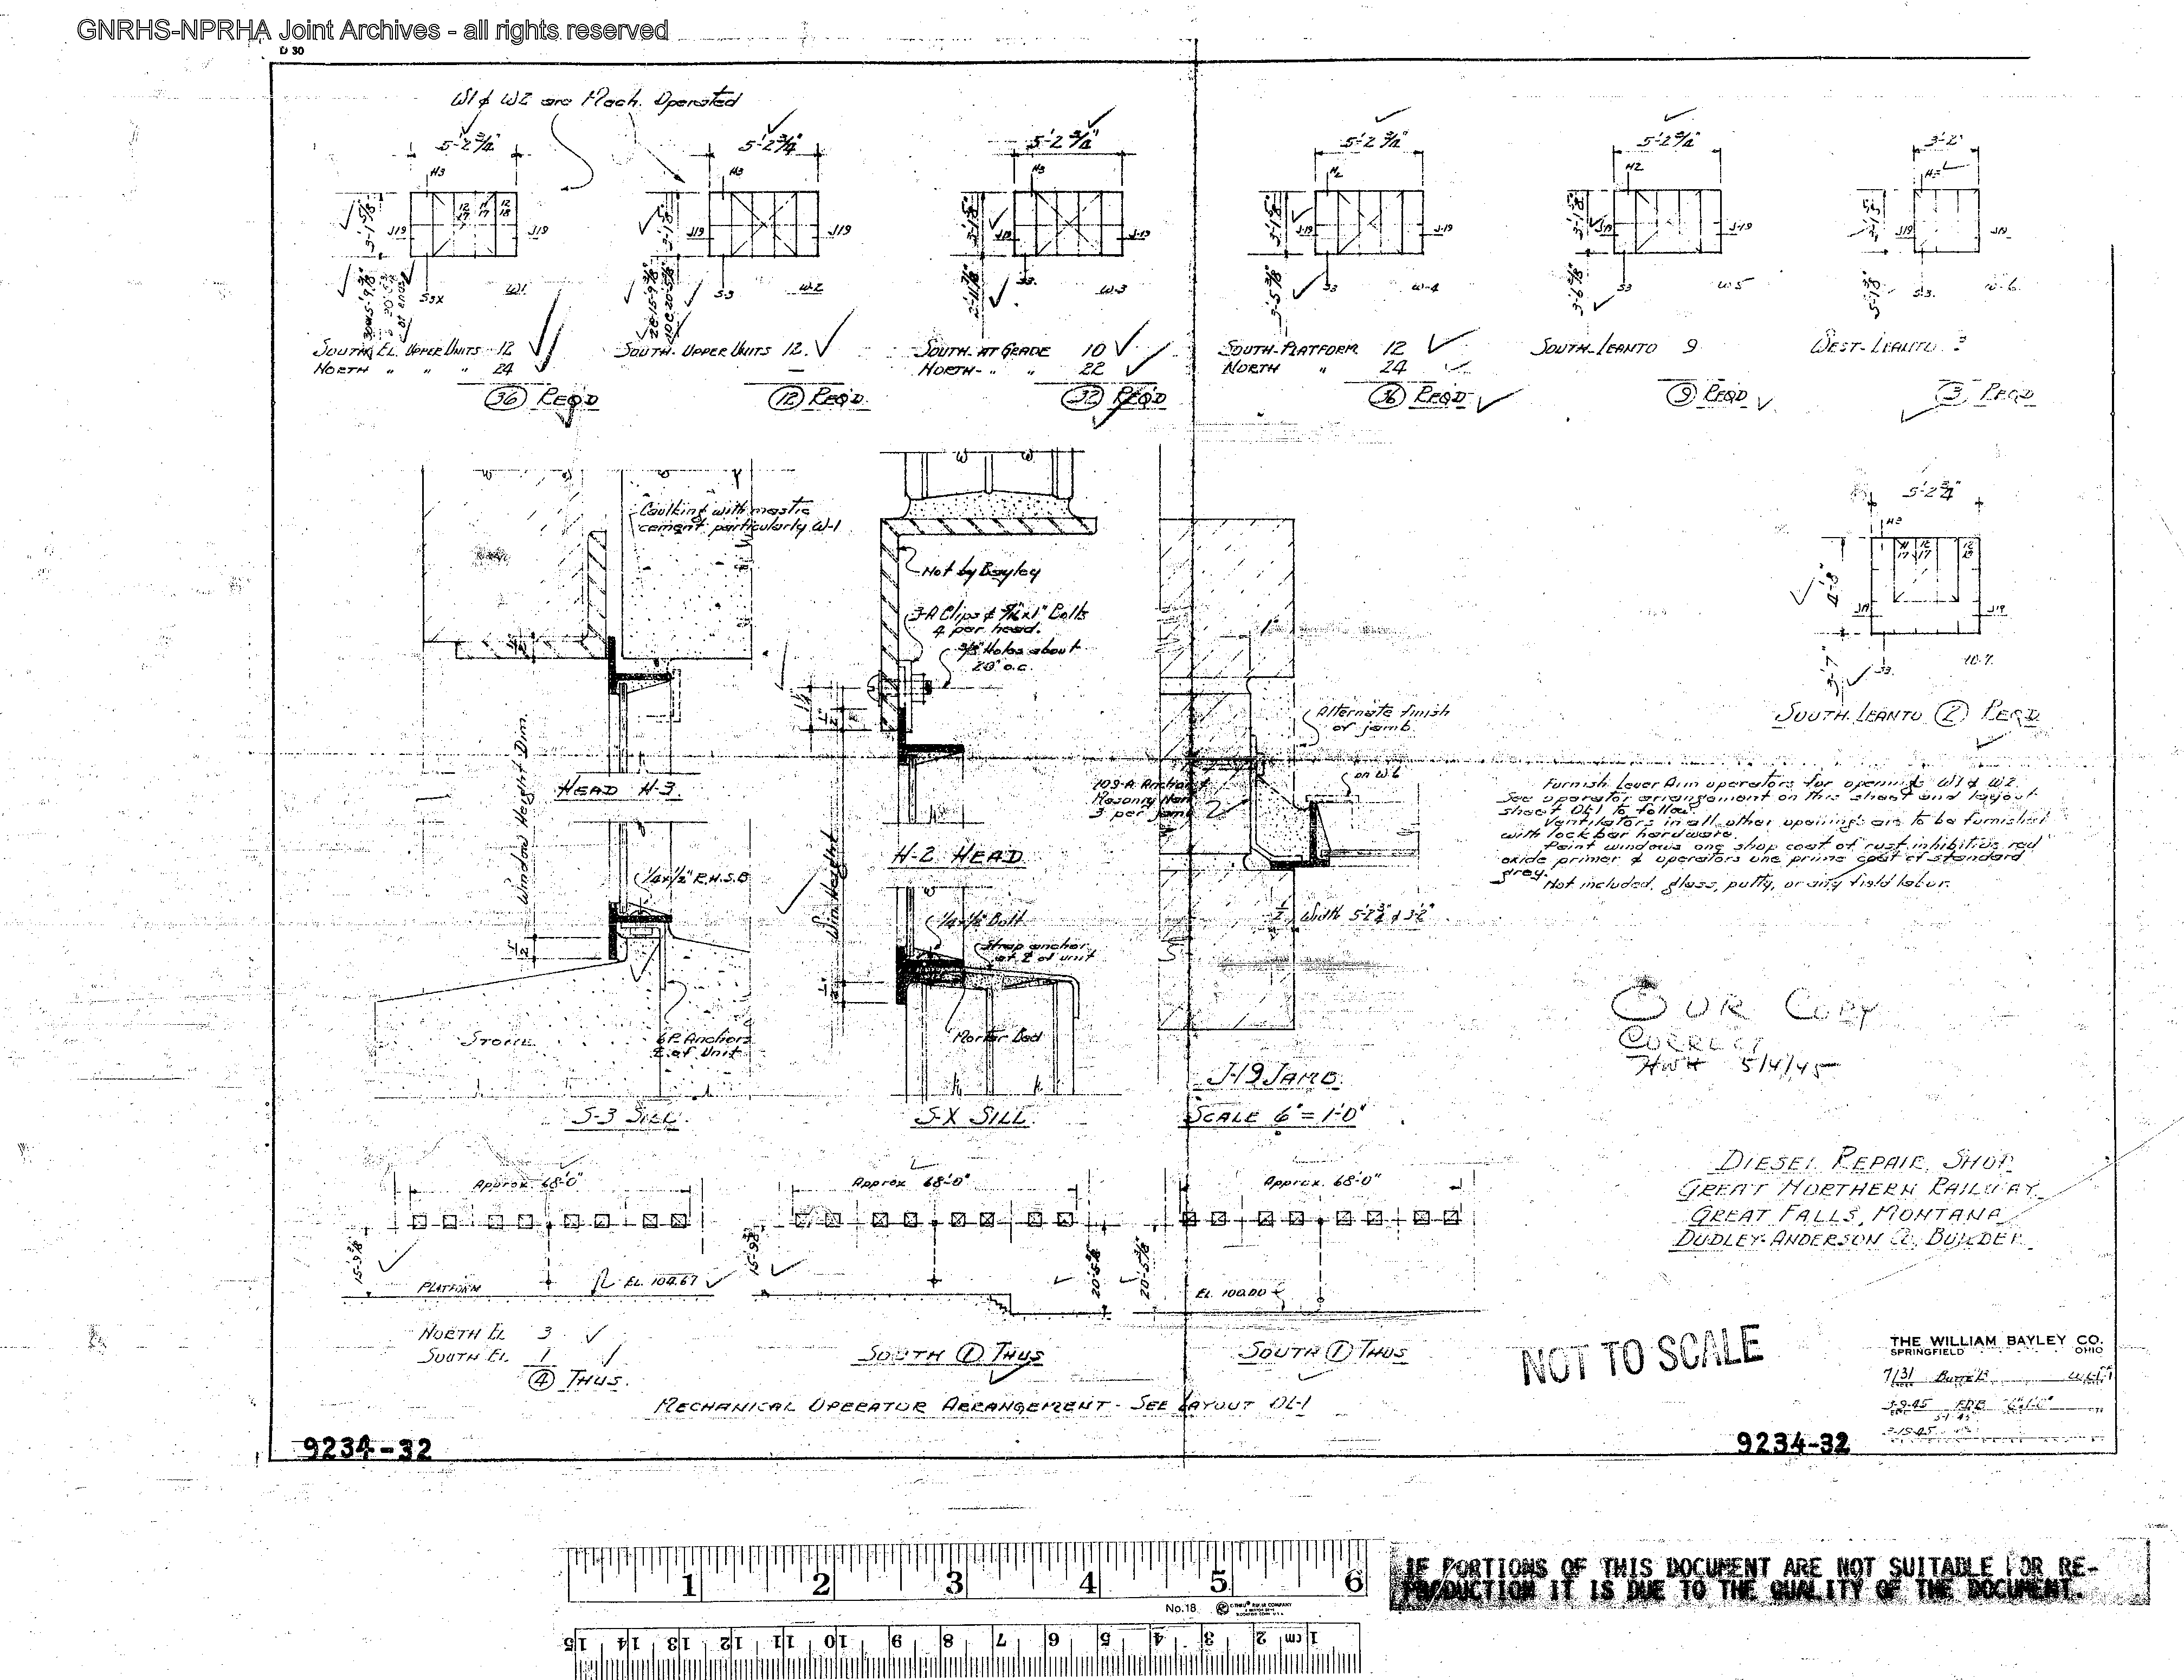 GNRHS-NPRHA Joint Archives - all rights reserved
D 30
W1 & W2 are Mech. Operated
5'-2 3/4"
5'-2 3/4"
5'-2 3/4"
5'-2 3/4"
5'-2 3/4"
3'-2"
H3
H3
H3
H2
H2
J19
J19
J19
J19
J-19
J-19
J-19
J-19
J19
J19
S3X
W1
S-3
W-2
S3.
W-3
S3
W-4
S3
W5
S3.
W-6.
SOUTH EL. UPPER UNITS 12
NORTH " " " 24
36 REQ'D
SOUTH- UPPER UNITS 12.
12 REQ'D.
SOUTH- AT GRADE 10
NORTH- " " 22
32 REQ'D
SOUTH-PLATFORM 12
NORTH " 24
36 REQ'D
SOUTH-LEANTO 9
9 REQ'D
WEST-LEANTO 3
3 REQ'D
Caulking with mastic
cement particularly W-1
Not by Bayley
3-A Clips & 5/16"x1" Bolts
4 per head.
3/8" Holes about
20" o.c.
Alternate finish
of jamb.
on W6
109-A Anchor
Masonry
3 per jamb
Window Height Dim.
HEAD H-3.
H-2 HEAD
Win Height
1/4x1/2" R.H.S.B
1/4x1/2" Bolt
Strap anchor
at ℄ of unit
1/2
Width 5'-2 3/4" & 3'-2"
STONE
6P. Anchors
℄ of Unit
Mortar Bed
S-3 SILL.
S-X SILL.
J-19 JAMB.
SCALE 6" = 1'-0"
5'-2 3/4"
H2
J19
J19
S3.
W-7.
SOUTH LEANTO 2 REQ'D
Furnish Lever Arm operators for openings W1 & W2.
See operator arrangement on this sheet and layout
sheet OL1 to follow.
Ventilators in all other openings are to be furnished
with lock bar hardware.
Paint windows one shop coat of rust inhibitive red
oxide primer & operators one prime coat of standard
grey.
Not included, glass, putty, or any field labor.
OUR COPY
CORRECT
HWH 5/4/45
DIESEL REPAIR SHOP
GREAT NORTHERN RAILWAY
GREAT FALLS, MONTANA
DUDLEY-ANDERSON CO. BUILDER
Approx. 68'-0"
Approx. 68'-0"
Approx. 68'-0"
15'-9 3/8
15'-9 3/8
20'-5 3/8
20'-5 3/8
PLATFORM
EL 104.67
EL. 100.00
NORTH EL 3
SOUTH EL 1
4 THUS.
SOUTH 1 THUS
SOUTH 1 THUS
MECHANICAL OPERATOR ARRANGEMENT- SEE LAYOUT OL-1
NOT TO SCALE
THE WILLIAM BAYLEY CO.
SPRINGFIELD OHIO
7131
3-9-45
9234-32
9234-32
1 2 3 4 5 6
No.18
15 14 13 12 11 10 9 8 7 6 5 4 3 2 cm 1
IF PORTIONS OF THIS DOCUMENT ARE NOT SUITABLE FOR RE-
PRODUCTION IT IS DUE TO THE QUALITY OF THE DOCUMENT.